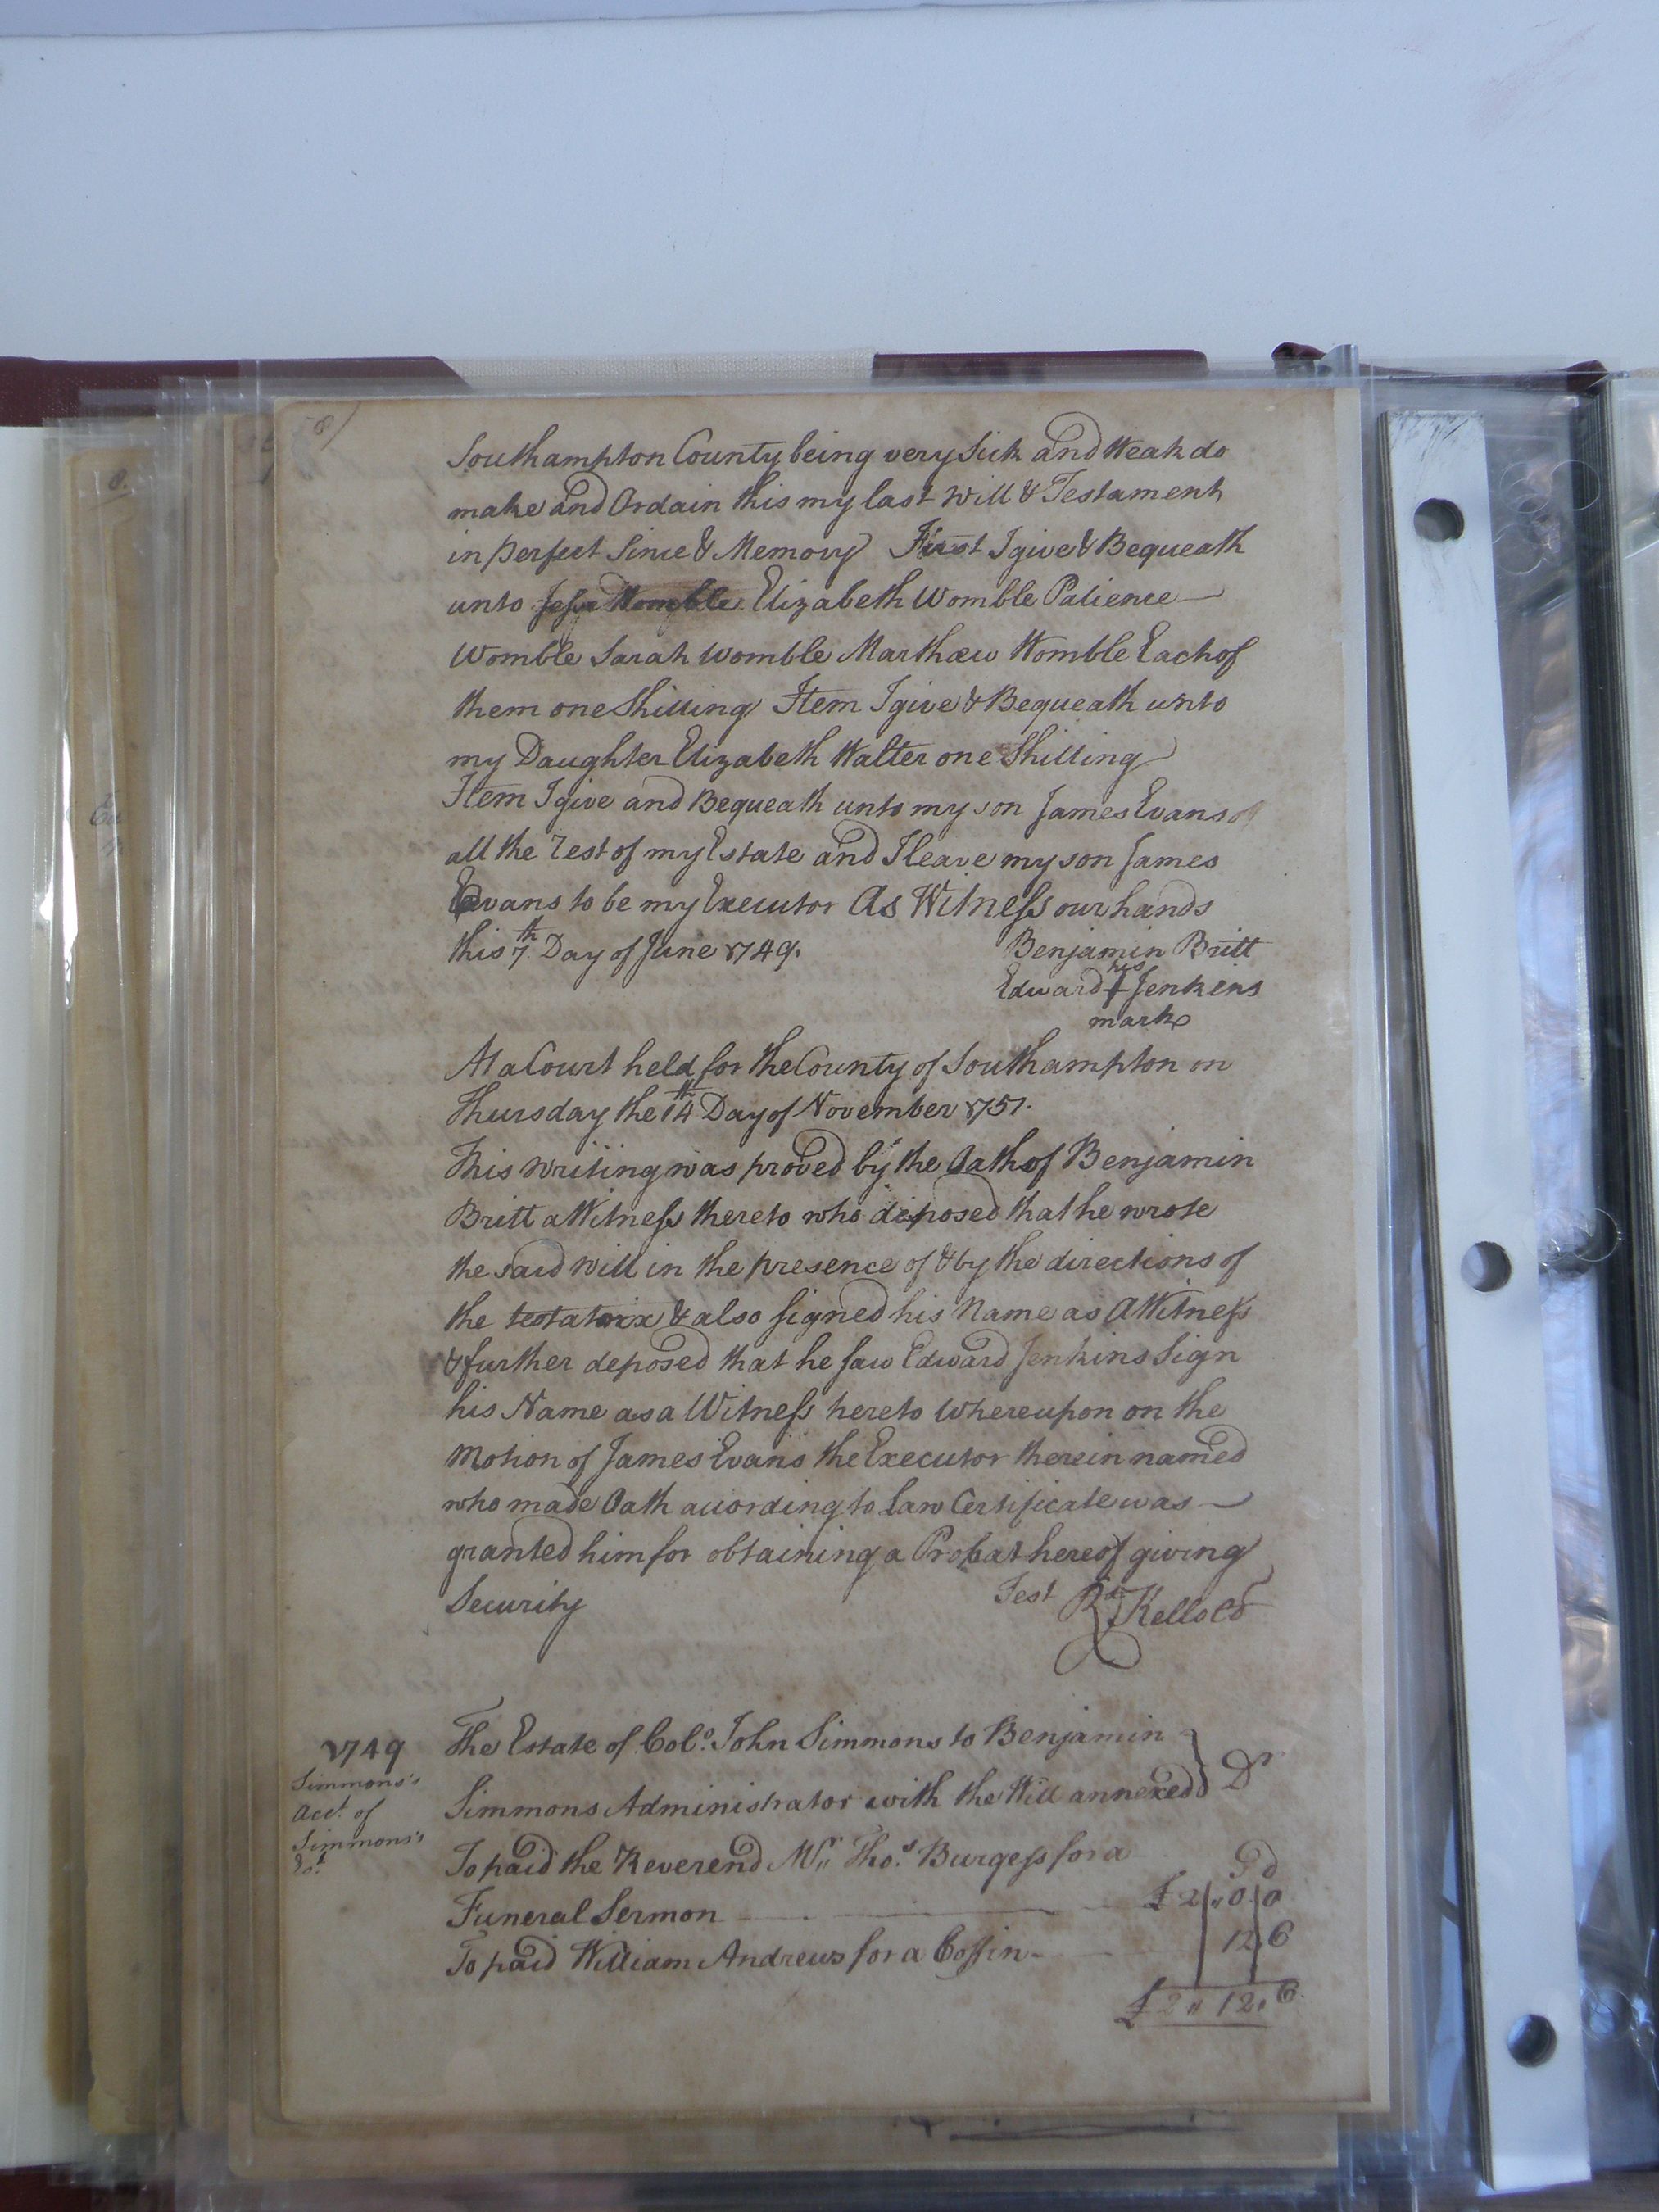 8
Southampton County being very Sick and Weak do
make and Ordain this my last Will & Testament
in perfect Since & Memory First I give & Bequeath
unto Jesse Womble Elizabeth Womble Patience
Womble Sarah Womble Marthew Womble Each of
them one Shilling Item I give & Bequeath unto
my Daughter Elizabeth Walter one Shilling
Item I give and Bequeath unto my son James Evans
all the rest of my Estate and I leave my son James
Evans to be my Executor As Witness our hands
this 7th Day of June 1749. Benjamin Britt
his
Edward + Jenkins
mark
At a Court held for the County of Southampton on
Thursday the 14th Day of November 1751.
This Writing was proved by the Oath of Benjamin
Britt a Witness thereto who deposed that he wrote
the said Will in the presence of & by the directions of
the testatrix & also signed his Name as a Witness
& further deposed that he saw Edward Jenkins Sign
his Name as a Witness hereto Whereupon on the
Motion of James Evans the Executor therein named
who made Oath according to Law Certificate was
granted him for obtaining a Probat hereof giving
Security Test Rd Kello Cl
1749 The Estate of Colo. John Simmons to Benjamin
Simmons Administrator with the Will annexed Dr
Simmons's
Acct. of
Simmons's
Est.
To paid the Reverend Mr. Thos. Burgess for a S d
Funeral Sermon £2 " 0 0
To paid William Andrews for a Coffin 12 6
£2 " 12 " 6